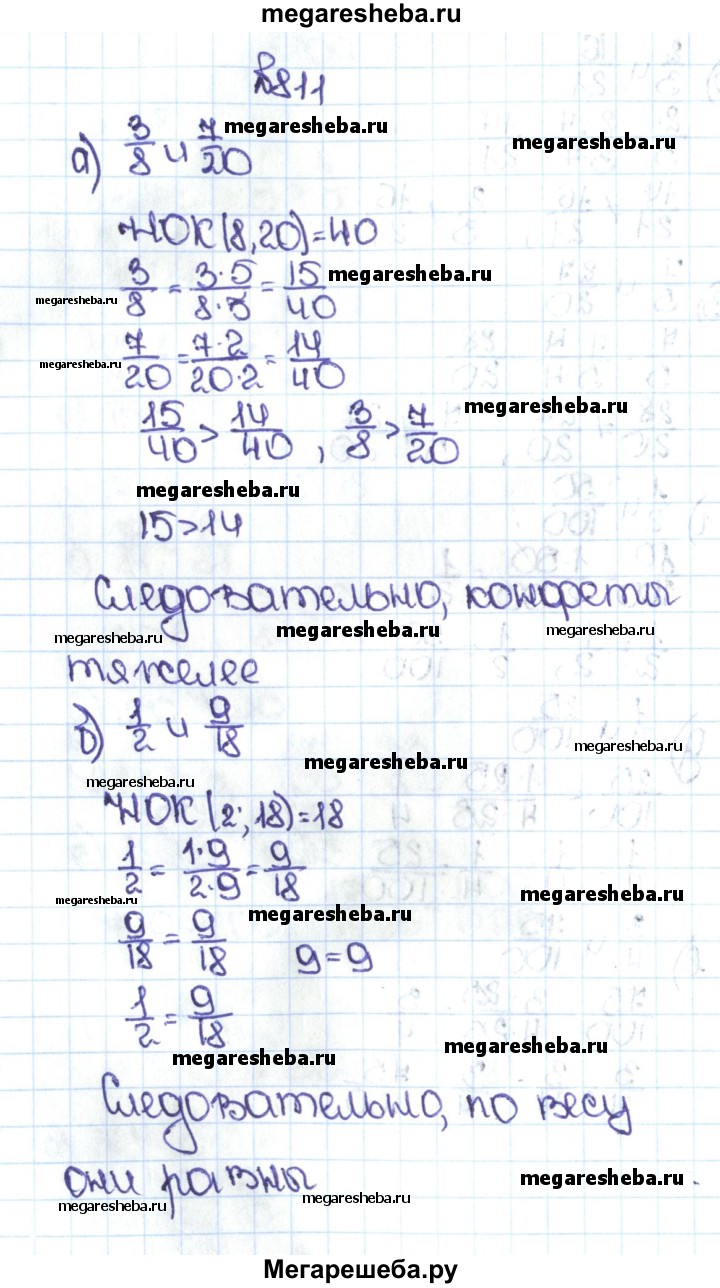 megaresheba.ru
№811
а) 3/8 и 7/20 megaresheba.ru megaresheba.ru
НОК(8,20)=40
3/8 = 3·5/8·5 = 15/40 megaresheba.ru
megaresheba.ru
7/20 = 7·2/20·2 = 14/40
megaresheba.ru
15/40 > 14/40 , 3/8 > 7/20 megaresheba.ru
megaresheba.ru
15>14
Следовательно, конфеты
megaresheba.ru megaresheba.ru megaresheba.ru
тяжелее
б) 1/2 и 9/18
megaresheba.ru megaresheba.ru megaresheba.ru
НОК(2;18)=18
1/2 = 1·9/2·9 = 9/18 megaresheba.ru
megaresheba.ru megaresheba.ru
9/18 = 9/18 9=9
1/2 = 9/18
megaresheba.ru megaresheba.ru
Следовательно, по весу
они равны megaresheba.ru
megaresheba.ru megaresheba.ru
Мегарешеба.ру